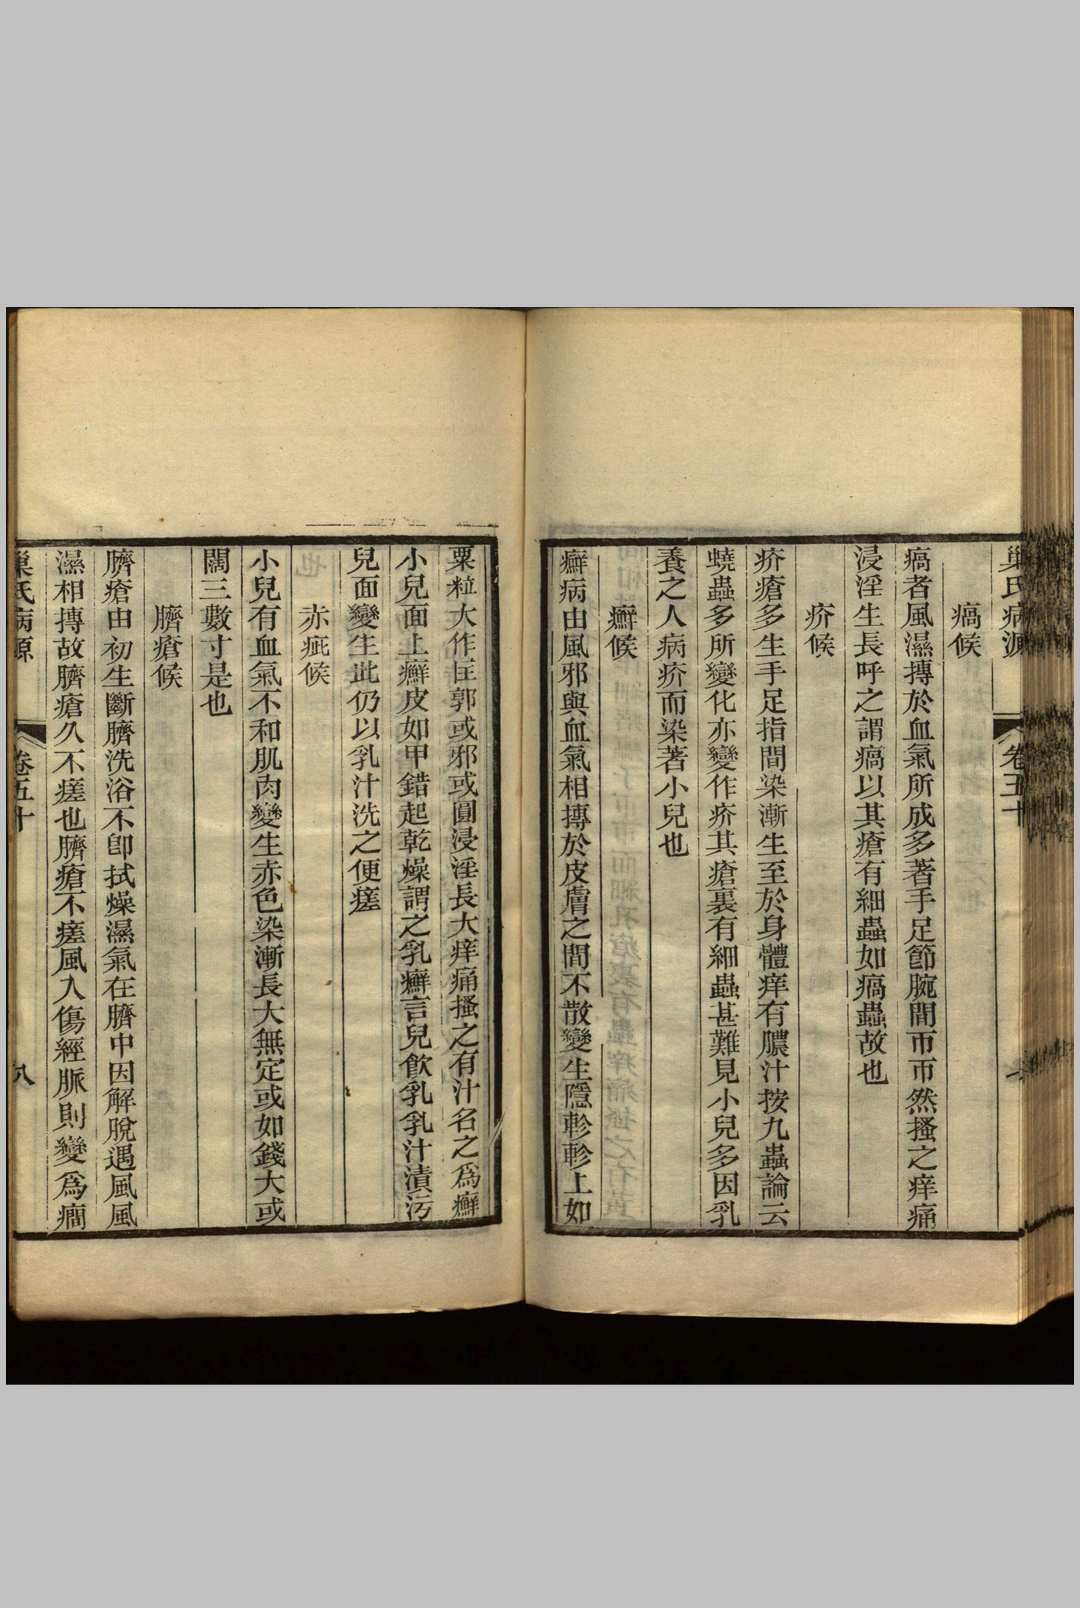 巢氏病源 卷五十
瘑候
瘑者風濕摶於血氣所成多著手足節腕間帀帀然搔之痒痛
浸淫生長呼之謂瘑以其瘡有細蟲如瘑蟲故也
疥候
疥瘡多生手足指間染漸生至於身體痒有膿汁按九蟲論云
蟯蟲多所變化亦變作疥其瘡裏有細蟲甚難見小兒多因乳
養之人病疥而染著小兒也
癬候
癬病由風邪與血氣相摶於皮膚之間不散變生隱軫軫上如
粟粒大作匡郭或邪或圓浸淫長大痒痛搔之有汁名之爲癬
小兒面上癬皮如甲錯起乾燥謂之乳癬言兒飲乳乳汁漬污
兒面變生此仍以乳汁洗之便瘥
赤疵候
小兒有血氣不和肌肉變生赤色染漸長大無定或如錢大或
闊三數寸是也
臍瘡候
臍瘡由初生斷臍洗浴不卽拭燥濕氣在臍中因解脫遇風風
濕相摶故臍瘡久不瘥也臍瘡不瘥風入傷經脈則變爲癇
巢氏病源 卷五十 八